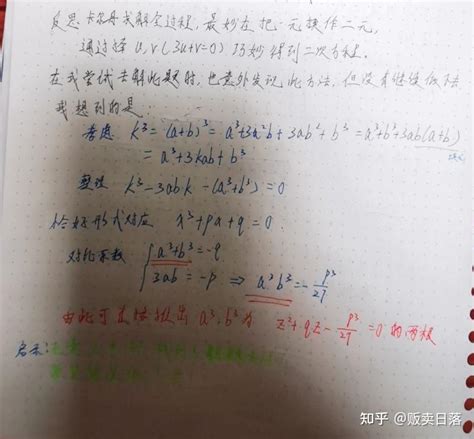 反思 卡尔丹求解全过程,最妙在把一元换作二元,
通过择 u,v (3uv+p=0) 巧妙得到二次方程.
在我尝试去解此题时,也意外发现此方法,但没有继续做下去
我想到的是
考虑 k³ = (a+b)³ = a³+3a²b+3ab²+b³ = a³+b³+3ab(a+b)
= a³+3kab+b³
整理 k³-3abk-(a³+b³)=0
恰好形式对应 x³+px+q=0.
对比系数 { a³+b³=-q
3ab=-p ⇒ a³b³=-p³/27
由此可直接推出 a³,b³为 z²+qz-p³/27=0 的两根
启示:
知乎 @贩卖日落